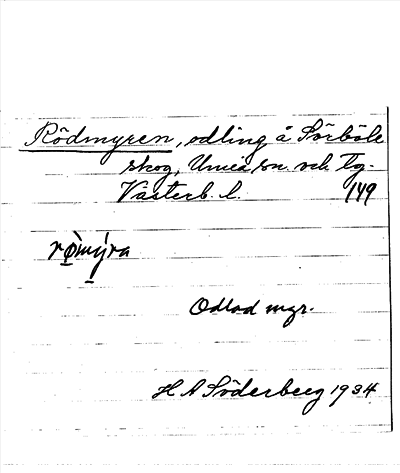 Rödmyren, odling å Sörböle
skog, Umeå sn. och tg.
Västerb. l. 149
rò̱mýra
Odlad myr.
H A Söderberg 1934